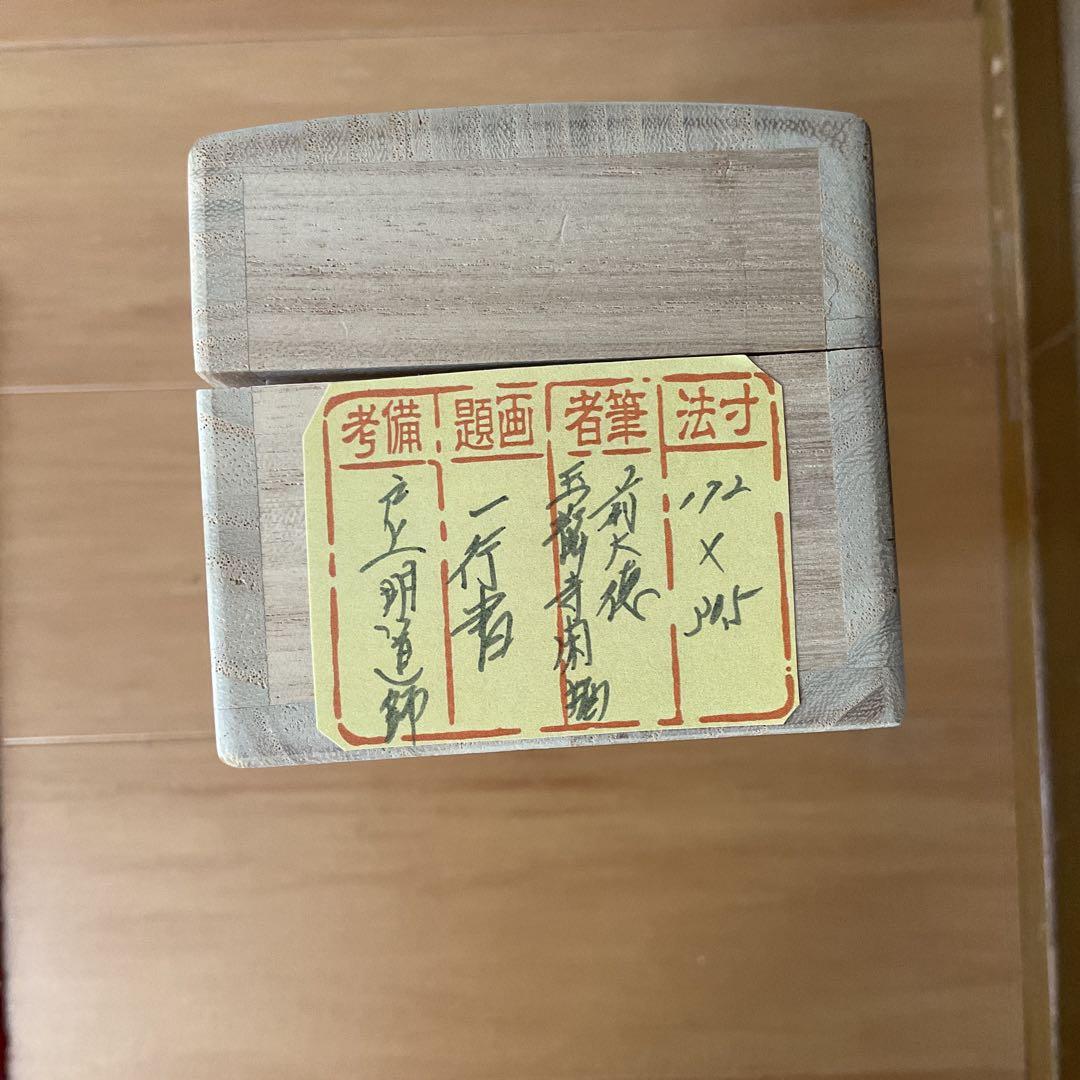 寸法
172
×
筆者
前大徳
玉瀧寺閑栖
画題
一行書
備考
戸上明道師